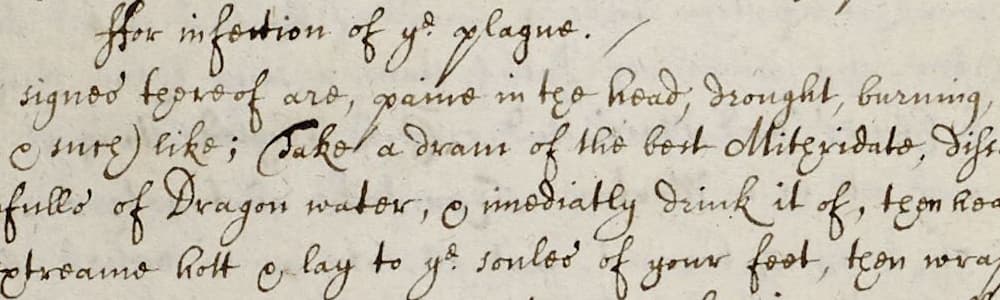 ffor infection of ye plague.
signes thereof are, paine in the head, drought, burning,
& such) like; Take a dram of the best Mithridate, diss
fulls of Dragon water, & imediatly drink it of, then hea
xtreame hott & lay to ye soules of your feet, then wrap